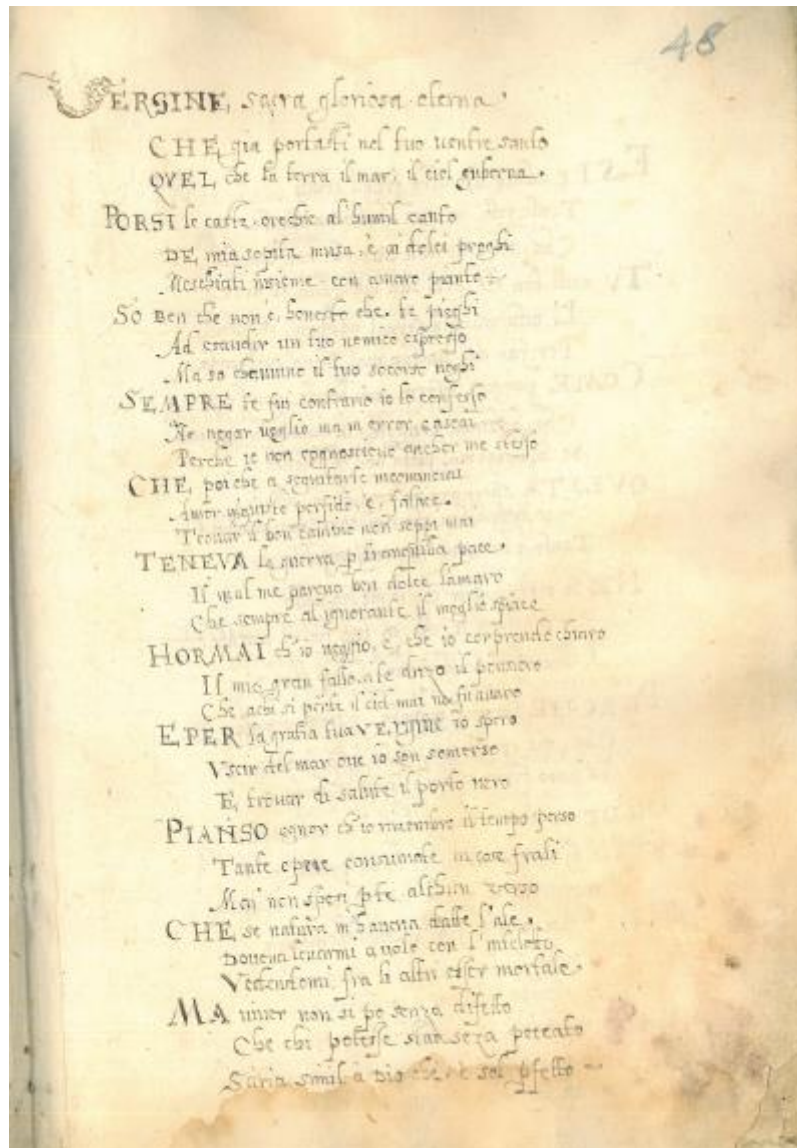 48
VERGINE, sacra gloriosa eterna
CHE gia portasti nel tuo ventre santo
QVEL che la terra il mar, il ciel guberna.
PORSI le caste orechie al humil canto
DE mia sopita musa, e ai dolci preghi
Meschiati insieme con amaro pianto
SO Ben che non è honesto che te pieghi
Ad exaudir un tuo nemico espresso
Ma so il tuo socorso neghi
SEMPRE te fui contrario io lo confesso
Ne negar veglio ma in error cascai
Perche io non cognosceuo ancher me stesso
CHE, poi che a seguitarte incominciai
Amor perfido, e, falace.
Trouar il bon camino non seppi mai
TENEVA la guerra p tranquilla pace.
Il mal me pareua ben dolce lamaro
Che sempre al ignorante il meglio spiace
HORMAI ch'io veggio, e, che io comprendo chiaro
Il mio gran fallo, a te drizo il pensiero
Che achi si pente il ciel mai no fu auaro
E PER la gratia tua VERGINE io spero
Vscir del mar oue io son somerso
E, trouar di salute il porto vero
PIANSO ognor ch'io il tempo perso
Tante opere consumate in cose frali
Mai non speri p te alchun verso
CHE se natura m'haueua datte l'ale.
Doueua leuarmi a volo con l'
Vedendomi fra li altri esser mortale.
MA viuer non si po senza difetto
Che chi potesse star seza peccato
Saria simil a Dio che è sol pfetto